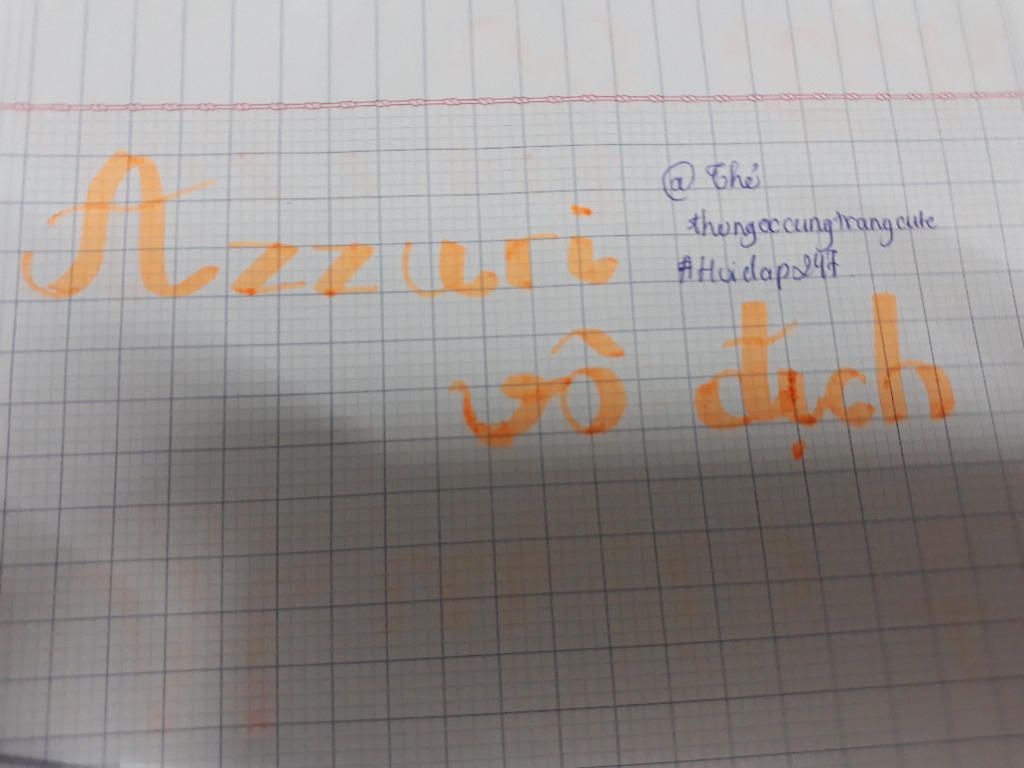 Azzuri
vô địch
@ Thé
thongoccungtrangcute
#Hoidap247